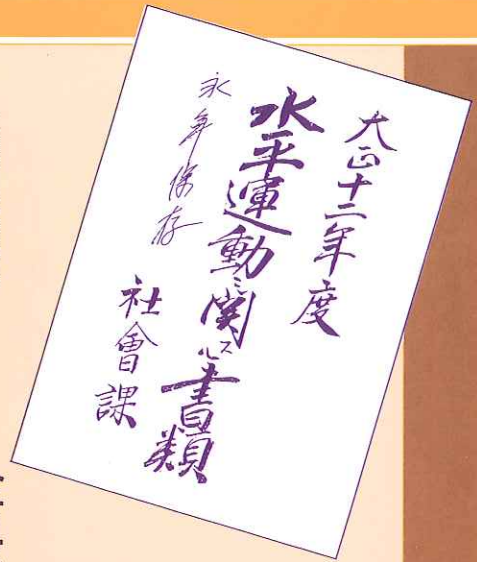 大正十二年度
水平運動ニ関スル書類
永年保存
社會課